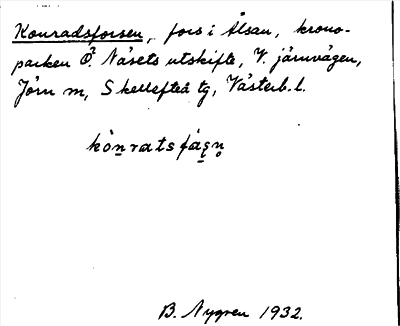 Konradsforsen, fors i Ålsån, krono-
parken Ö. Näsets utskifte, V. järnvägen,
Jörn m, Skellefteå tg, Västerb. l.
B. Nygren 1932.